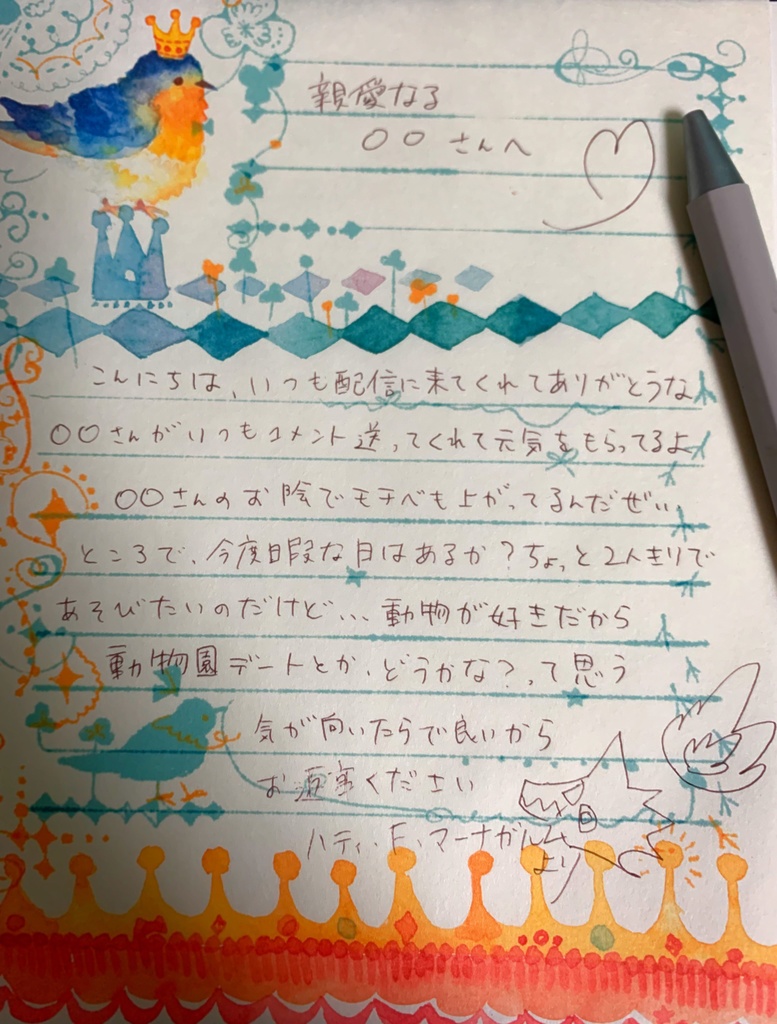 親愛なる
〇〇さんへ
こんにちは、いつも配信に来てくれてありがとうな
〇〇さんがいつもコメント送ってくれて元気をもらってるよ
〇〇さんのお陰でモチベも上がってるんだぜぃ
ところで、今度暇な日はあるか?ちょっと2人きりで
あそびたいのだけど...動物が好きだから
動物園デートとか、どうかな?って思う
気が向いたらで良いから
お返事ください
ハティ.F.マーナガルム
より